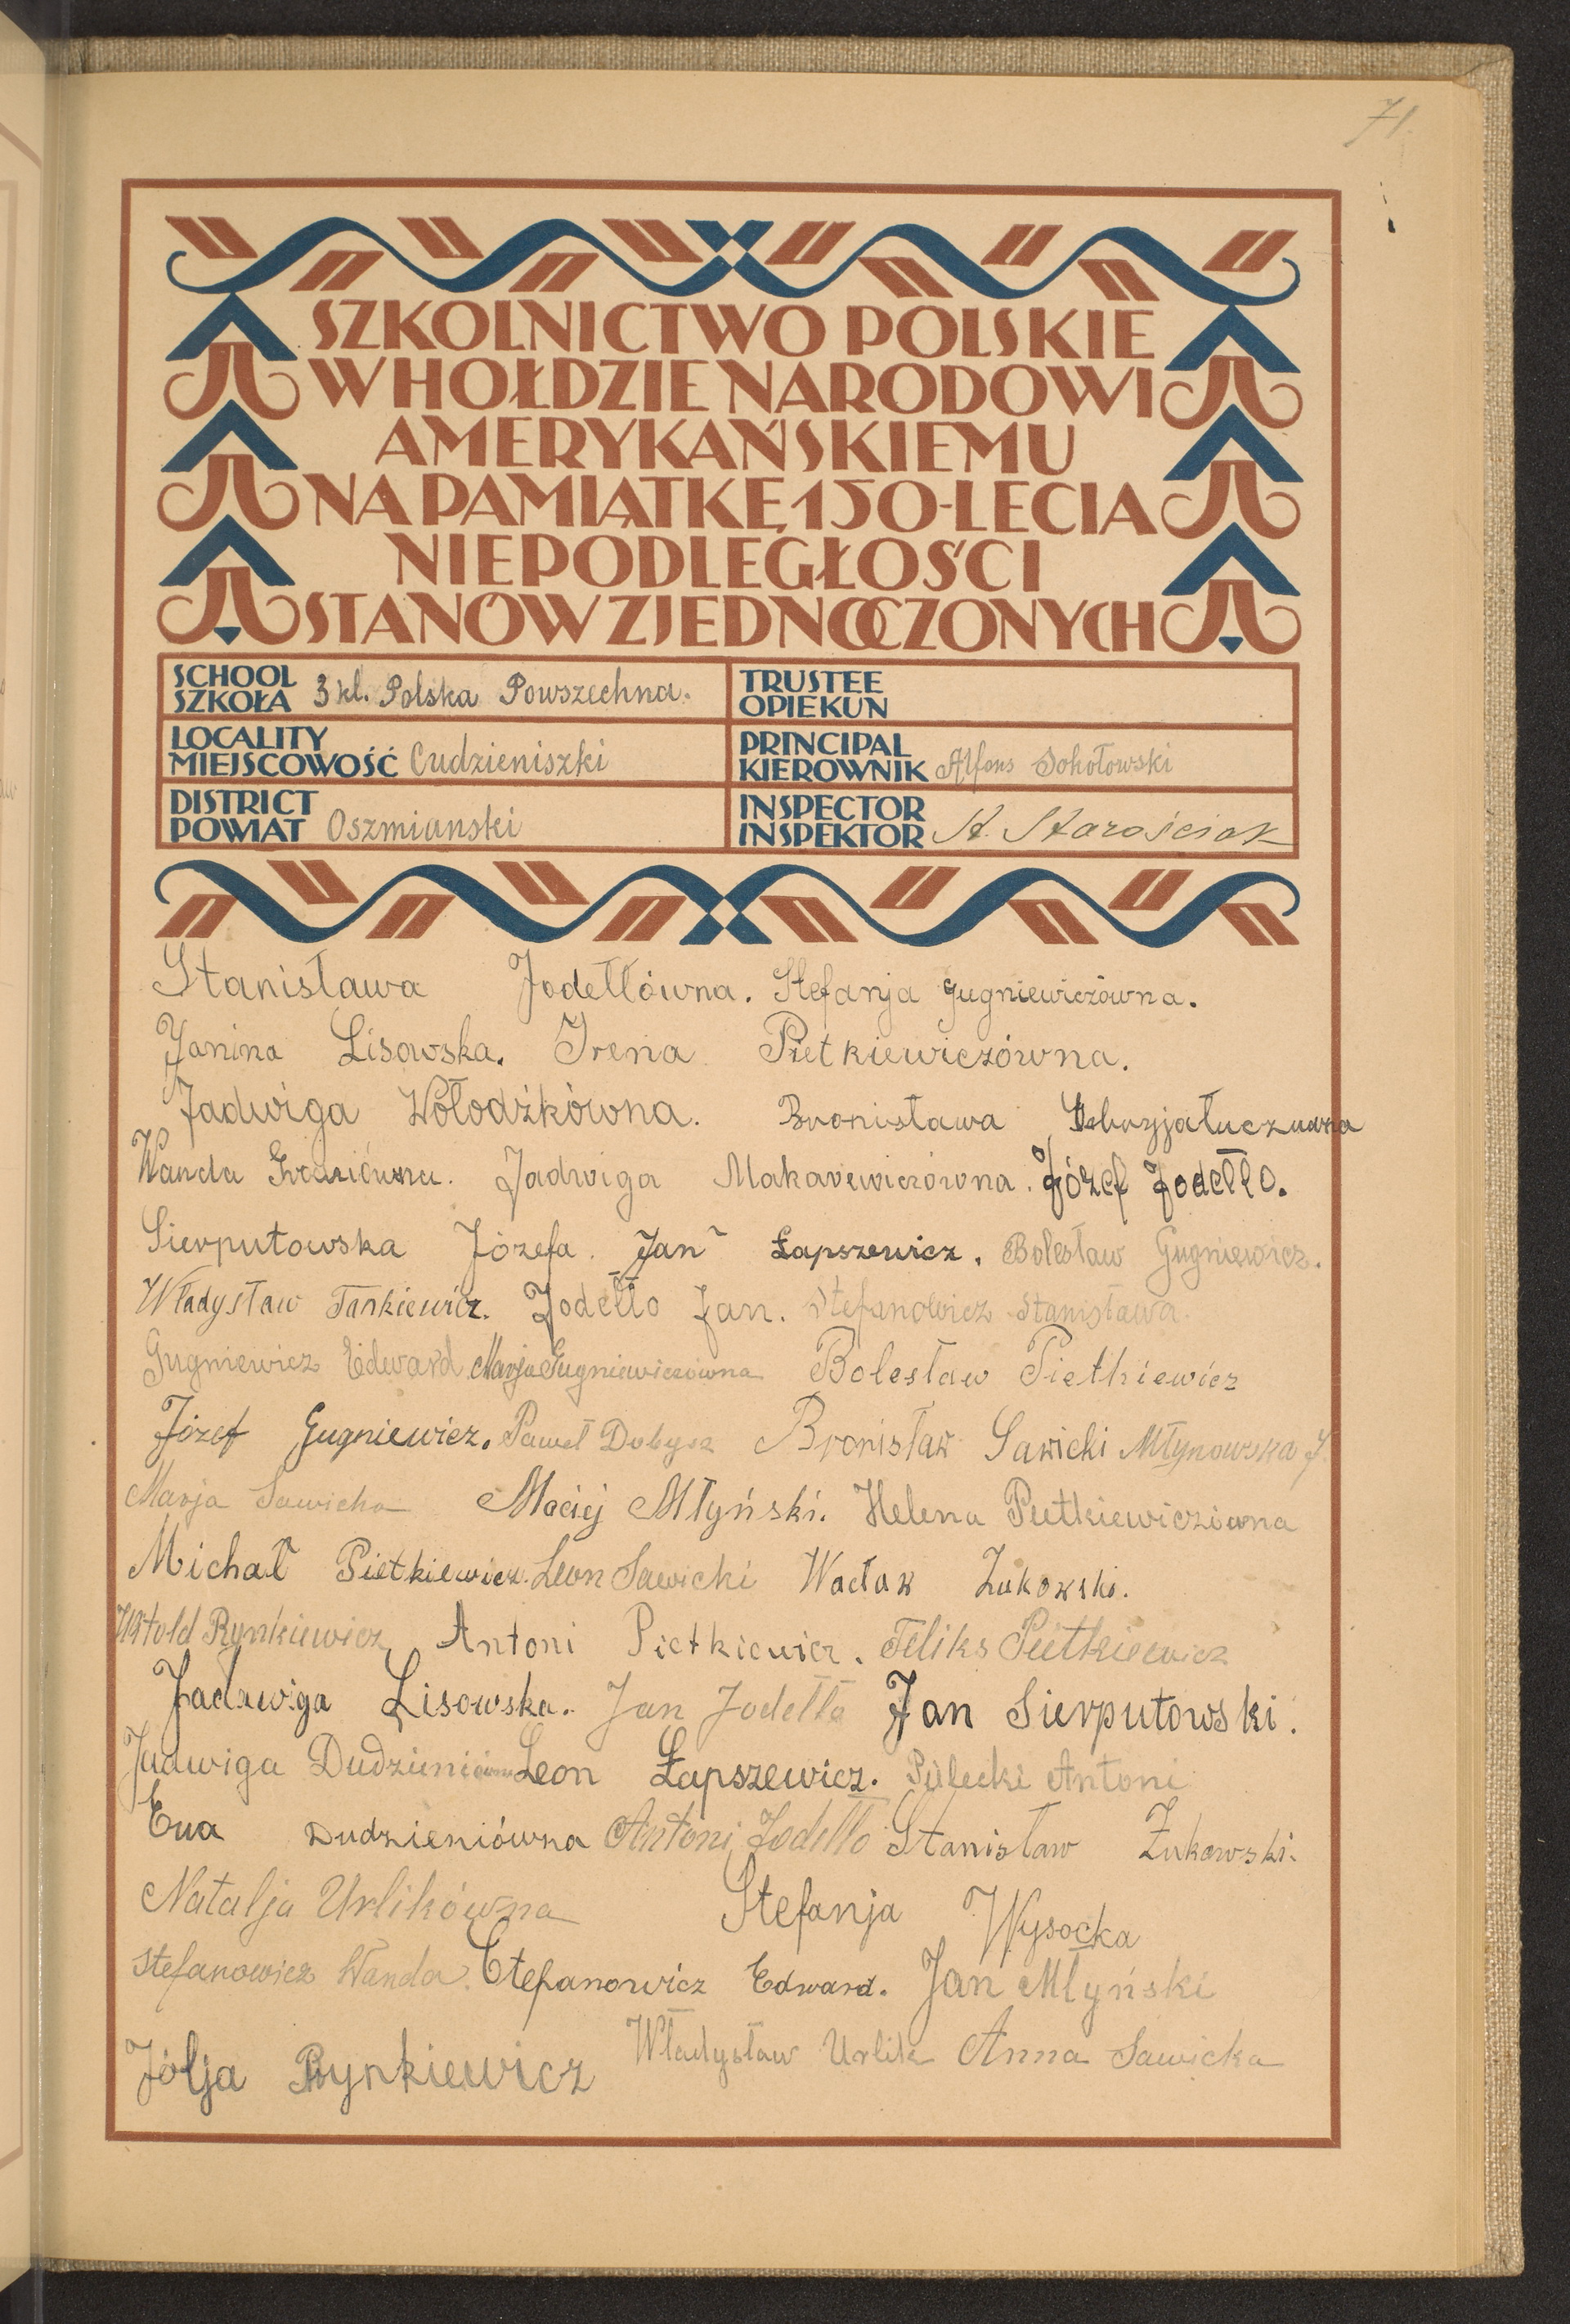 71.
SZKOLNICTWO POLSKIE
W HOŁDZIE NARODOWI
AMERYKAŃSKIEMU
NA PAMIĄTKĘ 150-LECIA
NIEPODLEGŁOŚCI
STANÓW ZJEDNOCZONYCH
SCHOOL
SZKOŁA 3 kl. Polska Powszechna.
TRUSTEE
OPIEKUN
LOCALITY
MIEJSCOWOŚĆ Cudzieniszki
PRINCIPAL
KIEROWNIK Alfons Sokołowski
DISTRICT
POWIAT Oszmianski
INSPECTOR
INSPEKTOR St. Starościak
Stanisława Jodełłówna. Stefanja Gugniewiczówna.
Janina Lisowska. Irena Pietkiewiczówna.
Jadwiga Wołodźkówna. Bronisława
Wanda Jadwiga Makarewiczówna. Józef Jodełło.
Sierputowska Józefa. Jan Łapszewicz. Bolesław Gugniewicz.
Władysław Tankiewicz. Jodełło Jan. Stefanowicz Stanisława.
Gugniewicz Edward Marja Gugniewiczówna Bolesław Pietkiewicz
Józef Gugniewicz. Paweł Dobysz Bronisław Sawicki Młynowska J.
Marja Sawicka Maciej Młyński. Helena Pietkiewiczówna
Michał Pietkiewicz. Leon Sawicki Wacław Żukowski.
Witold Rynkiewicz Antoni Pietkiewicz. Feliks Pietkiewicz
Jadwiga Lisowska. Jan Jodełło Jan Sierputowski.
Jadwiga Dudzieniówna Leon Łapszewicz. Antoni
Ewa Dudzieniówna Antoni Jodełło Stanisław Żukowski.
Natalja Urlikówna Stefanja Wysocka
Stefanowicz Wanda. Stefanowicz Edward. Jan Młyński
Jólja Rynkiewicz Władysław Urlik Anna Sawicka